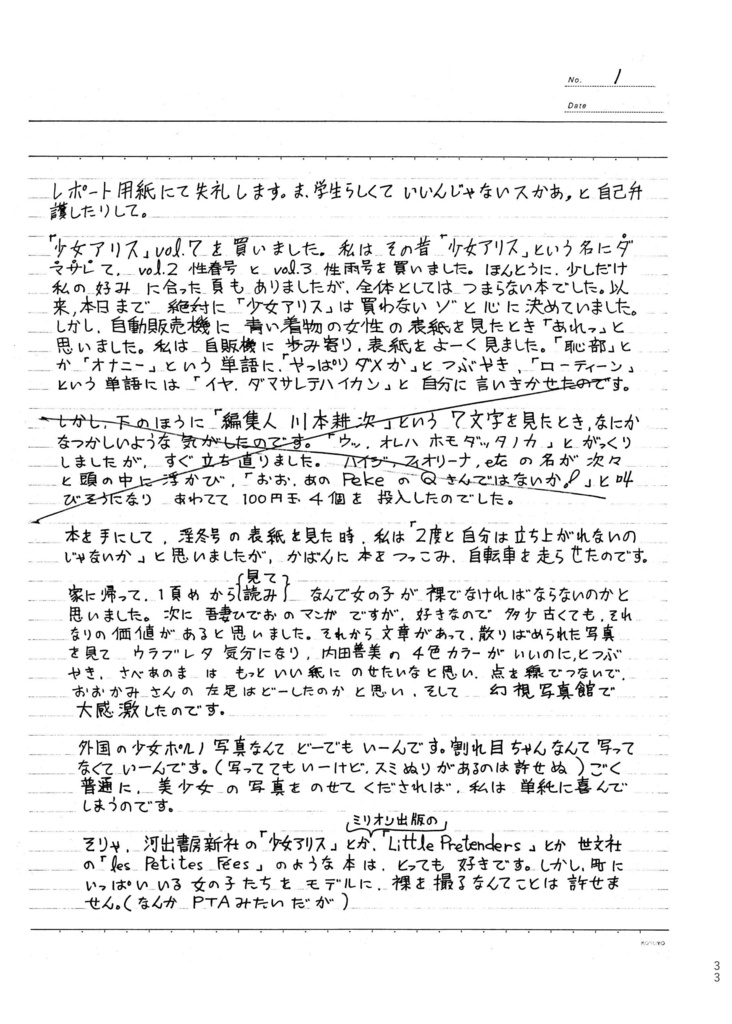 No. 1
Date
レポート用紙にて失礼します。ま、学生らしくていいんじゃないスかあ。と自己弁
護したりして。
「少女アリス」vol.7を買いました。私はその昔「少女アリス」という名にダ
マサレて、vol.2 性春号とvol.3 性雨号を買いました。ほんとうに、少しだけ
私の好みに合った頁もありましたが、全体としてはつまらない本でした。以
来、本日まで絶対に「少女アリス」は買わないゾと心に決めていました。
しかし、自動販売機に青い着物の女性の表紙を見たとき「あれっ」と
思いました。私は自販機に歩み寄り、表紙をよーく見ました。「恥部」と
か「オナニー」という単語に、「やっぱりダメか」とつぶやき、「ローティーン」
という単語には「イヤ、ダマサレテハイカン」と自分に言いきかせたのです。
しかし、下のほうに「編集人 川本耕次」という7文字を見たとき、なにか
なつかしいような気がしたのです。「ウッ、オレハホモダッタノカ」とがっくり
しましたが、すぐ立ち直りました。ハイジ、フィオリーナ、e花の名が次々
と頭の中に浮かび、「おお、あのPekeのQさんではないか!」と叫
びそうになりあわてて100円玉4個を投入したのでした。
本を手にして、淫冬号の表紙を見た時、私は「2度と自分は立ち上がれないの
じゃないか」と思いましたが、かばんに本をつっこみ、自転車を走らせたのです。
家に帰って、1頁めから{見て 読み}なんで女の子が裸でなければならないのかと
思いました。次に吾妻ひでおのマンガですが、好きなので多少古くても、それ
なりの価値があると思いました。それから文章があって、散りばめられた写真
を見てウラブレタ気分になり、内田善美の4色カラーがいいのに、とつぶ
やき、さべあのまはもっといい紙にのせたいなと思い、点を線でつないで、
おおかみさんの左足はどーしたのかと思い、そして幻視写真館で
大感激したのです。
外国の少女ポルノ写真なんてどーでもいーんです。割れ目ちゃんなんて写って
なくていーんです。(写っててもいーけど、スミぬりがあるのは許せぬ)ごく
普通に、美少女の写真をのせてくだされば、私は単純に喜んで
しまうのです。
ミリオン出版の
そりゃ、河出書房新社の「少女アリス」とか、「Little Pretenders」とか世文社
の「les Petites Fées」のような本は、とっても好きです。しかし、町に
いっぱいいる女の子たちをモデルに、裸を撮るなんてことは許せま
せん。(なんかPTAみたいだが)
KOKUYO
33